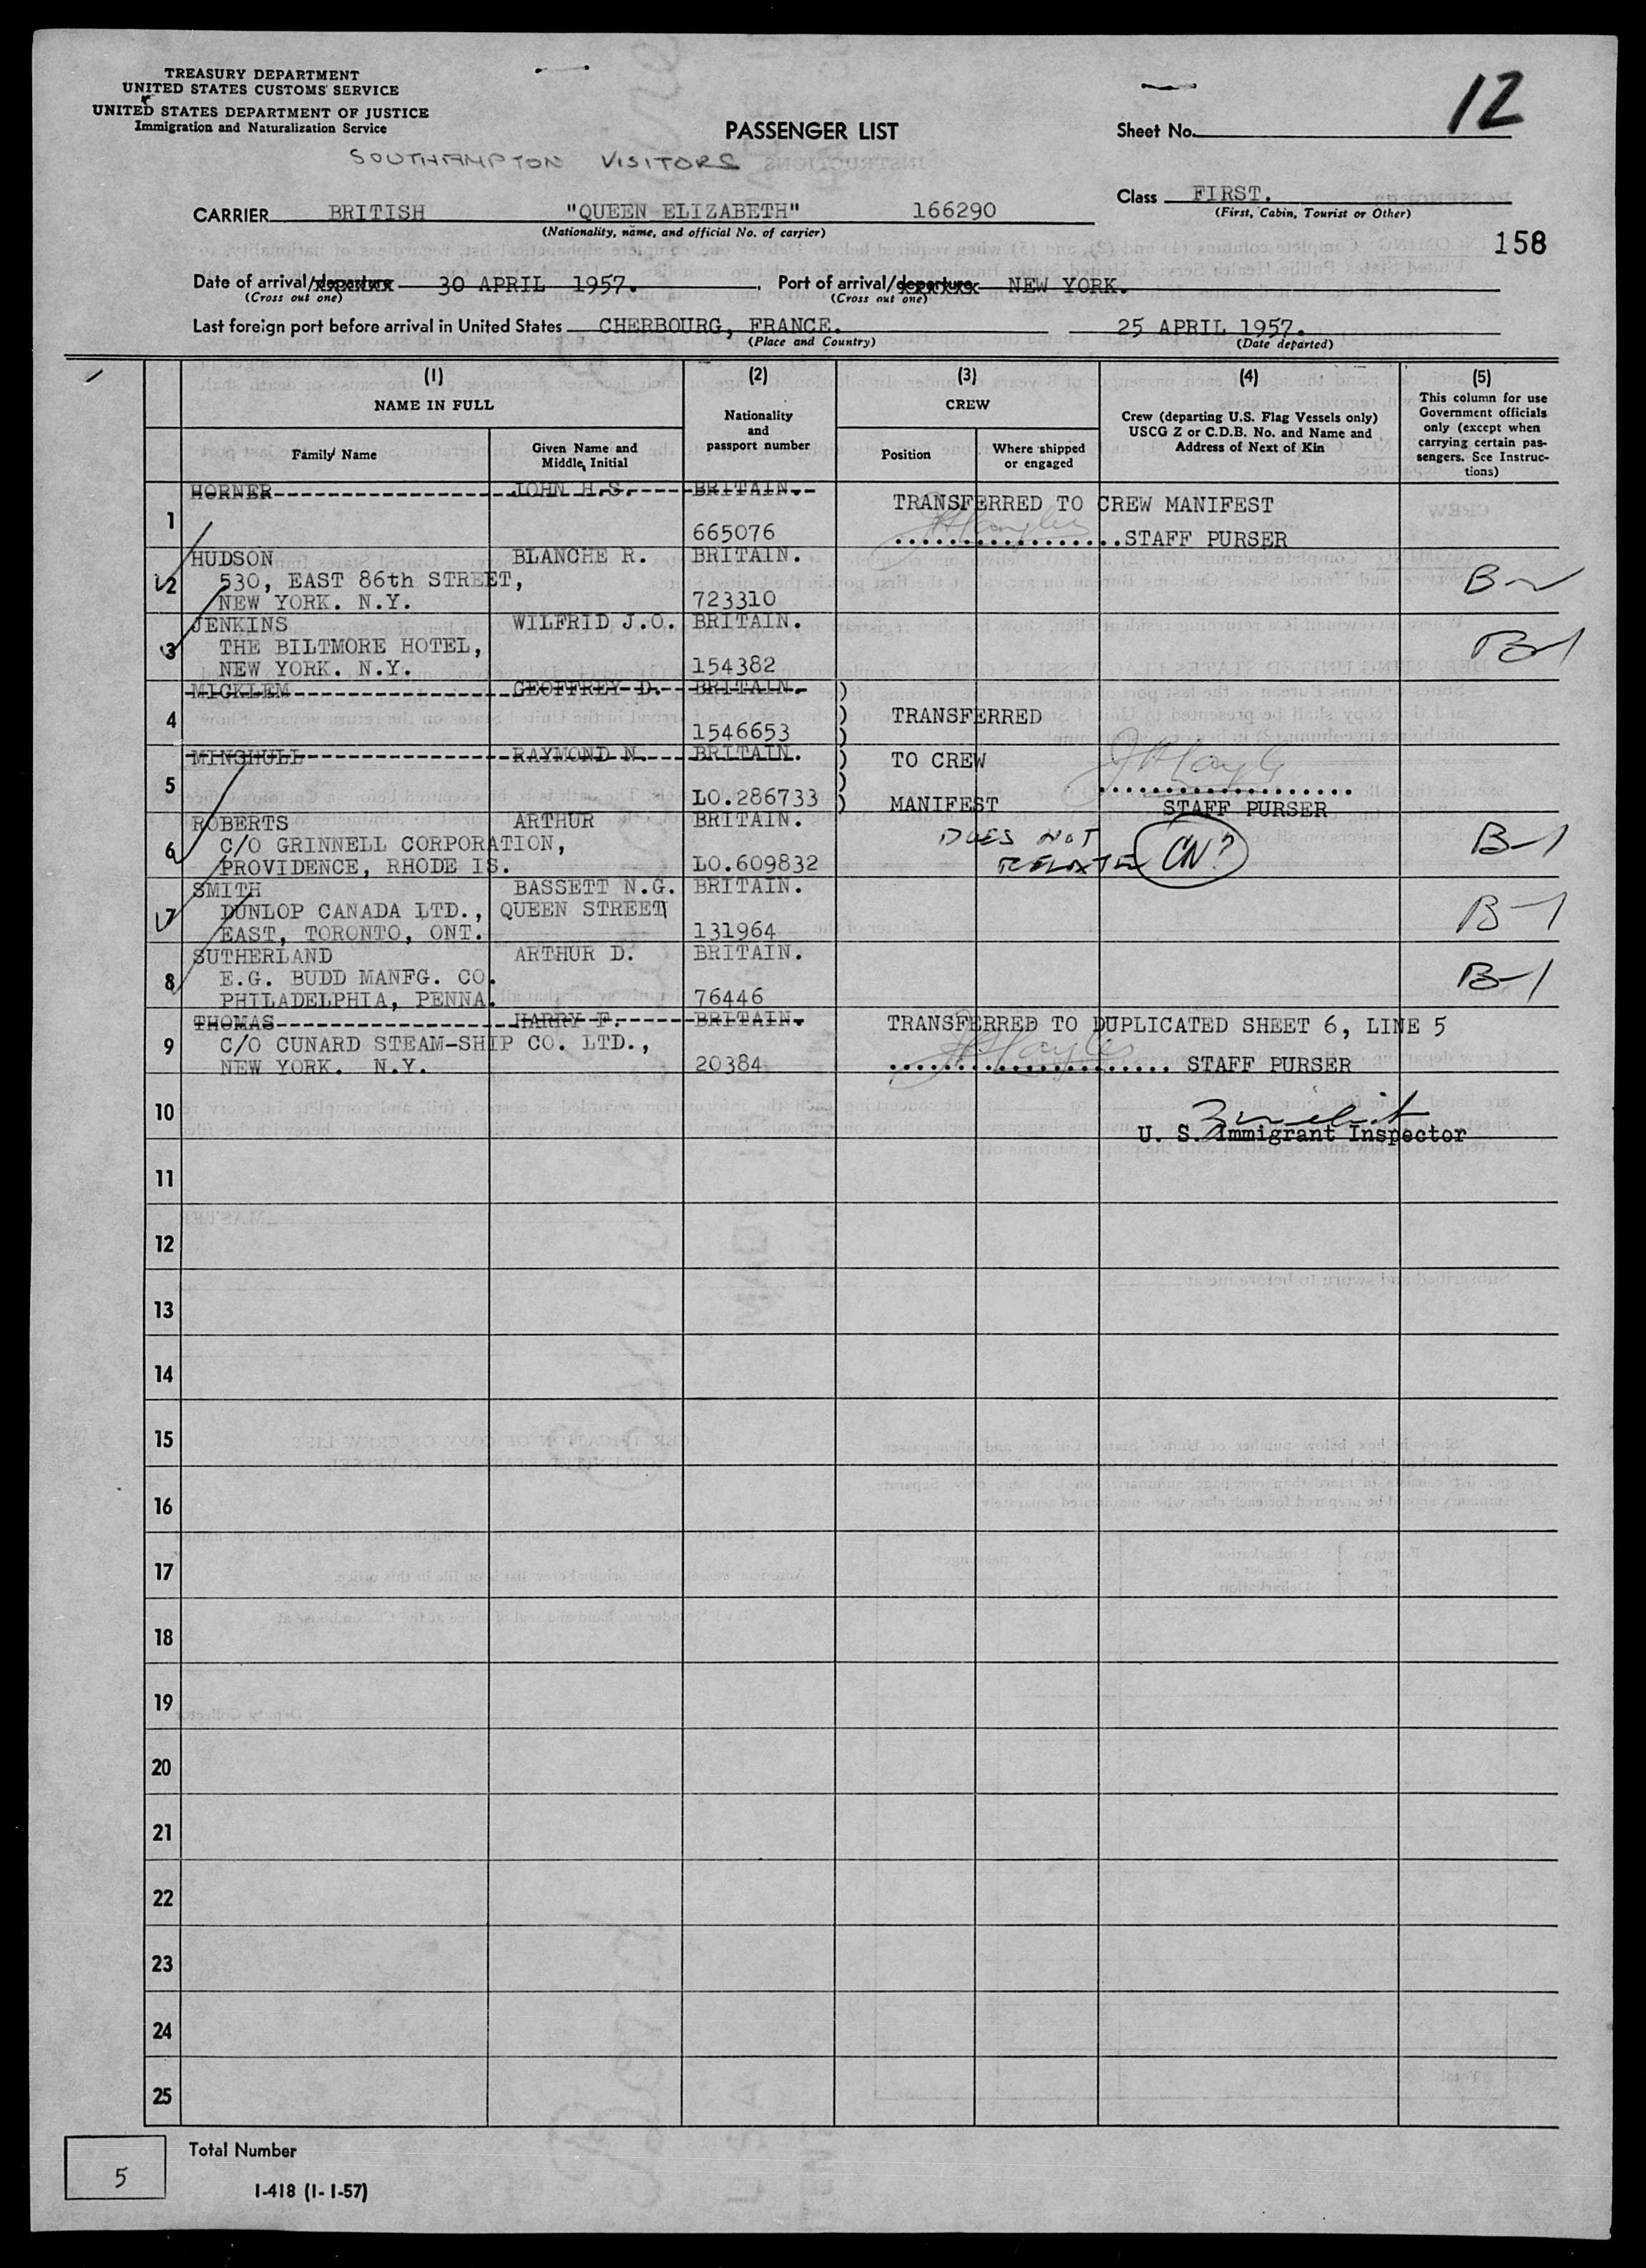 TREASURY DEPARTMENT
UNITED STATES CUSTOMS SERVICE
UNITED STATES DEPARTMENT OF JUSTICE
Immigration and Naturalization Service
PASSENGER LIST
Sheet No. 12
SOUTHAMPTON VISITORS
Class FIRST.
(First, Cabin, Tourist or Other)
CARRIER BRITISH "QUEEN ELIZABETH" 166290
(Nationality, name, and official No. of carrier)
158
Date of arrival/departure 30 APRIL 1957. Port of arrival/departure NEW YORK.
(Cross out one) (Cross out one)
Last foreign port before arrival in United States CHERBOURG, FRANCE. 25 APRIL 1957.
(Place and Country) (Date departed)
(1) (2) (3) (4) (5)
NAME IN FULL
Nationality and passport number
CREW
Crew (departing U.S. Flag Vessels only) USCG Z or C.D.B. No. and Name and Address of Next of Kin
This column for use Government officials only (except when carrying certain passengers. See Instructions)
Family Name
Given Name and Middle Initial
Position
Where shipped or engaged
1 HORNER JOHN H.S. BRITAIN.
TRANSFERRED TO CREW MANIFEST
665076 STAFF PURSER
2 HUDSON BLANCHE R. BRITAIN.
530, EAST 86th STREET,
NEW YORK. N.Y. 723310
3 JENKINS WILFRID J.O. BRITAIN.
THE BILTMORE HOTEL, B-1
NEW YORK. N.Y. 154382
4 MICKLEM GEOFFREY D. BRITAIN. )
) TRANSFERRED
1546653 )
5 MINSHULL RAYMOND N. BRITAIN. ) TO CREW
)
LO.286733 ) MANIFEST STAFF PURSER
6 ROBERTS ARTHUR BRITAIN. DOES NOT
C/O GRINNELL CORPORATION, CN? B-1
PROVIDENCE, RHODE IS. LO.609832
7 SMITH BASSETT N.G. BRITAIN.
DUNLOP CANADA LTD., QUEEN STREET B-1
EAST, TORONTO, ONT. 131964
8 SUTHERLAND ARTHUR D. BRITAIN.
E.G. BUDD MANFG. CO. B-1
PHILADELPHIA, PENNA. 76446
9 THOMAS HARRY F. BRITAIN. TRANSFERRED TO DUPLICATED SHEET 6, LINE 5
C/O CUNARD STEAM-SHIP CO. LTD.,
NEW YORK. N.Y. 20384 STAFF PURSER
10
U. S. Immigrant Inspector
11
12
13
14
15
16
17
18
19
20
21
22
23
24
25
5 Total Number
I-418 (1-1-57)